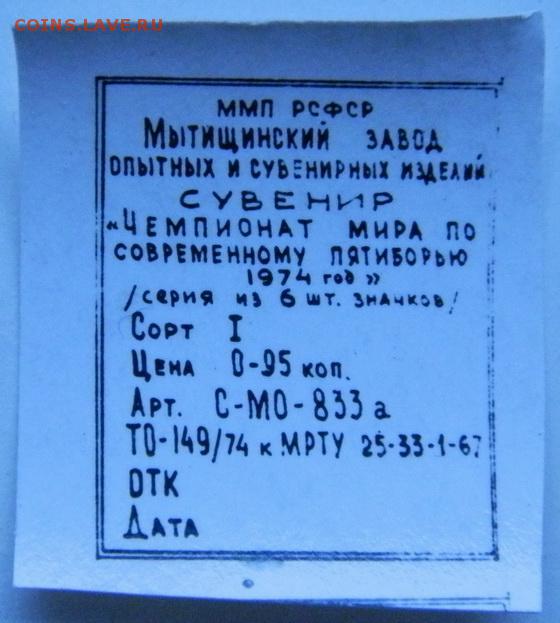 COINS.LAVE.RU
ММП РСФСР
МЫТИЩИНСКИЙ ЗАВОД
ОПЫТНЫХ И СУВЕНИРНЫХ ИЗДЕЛИЙ
СУВЕНИР
«ЧЕМПИОНАТ МИРА ПО
СОВРЕМЕННОМУ ПЯТИБОРЬЮ
1974 год»
/серия из 6 шт. значков/
СОРТ I
ЦЕНА 0-95 коп.
АРТ. С-МО-833а
ТО-149/74 к МРТУ 25-33-1-67
ОТК
ДАТА